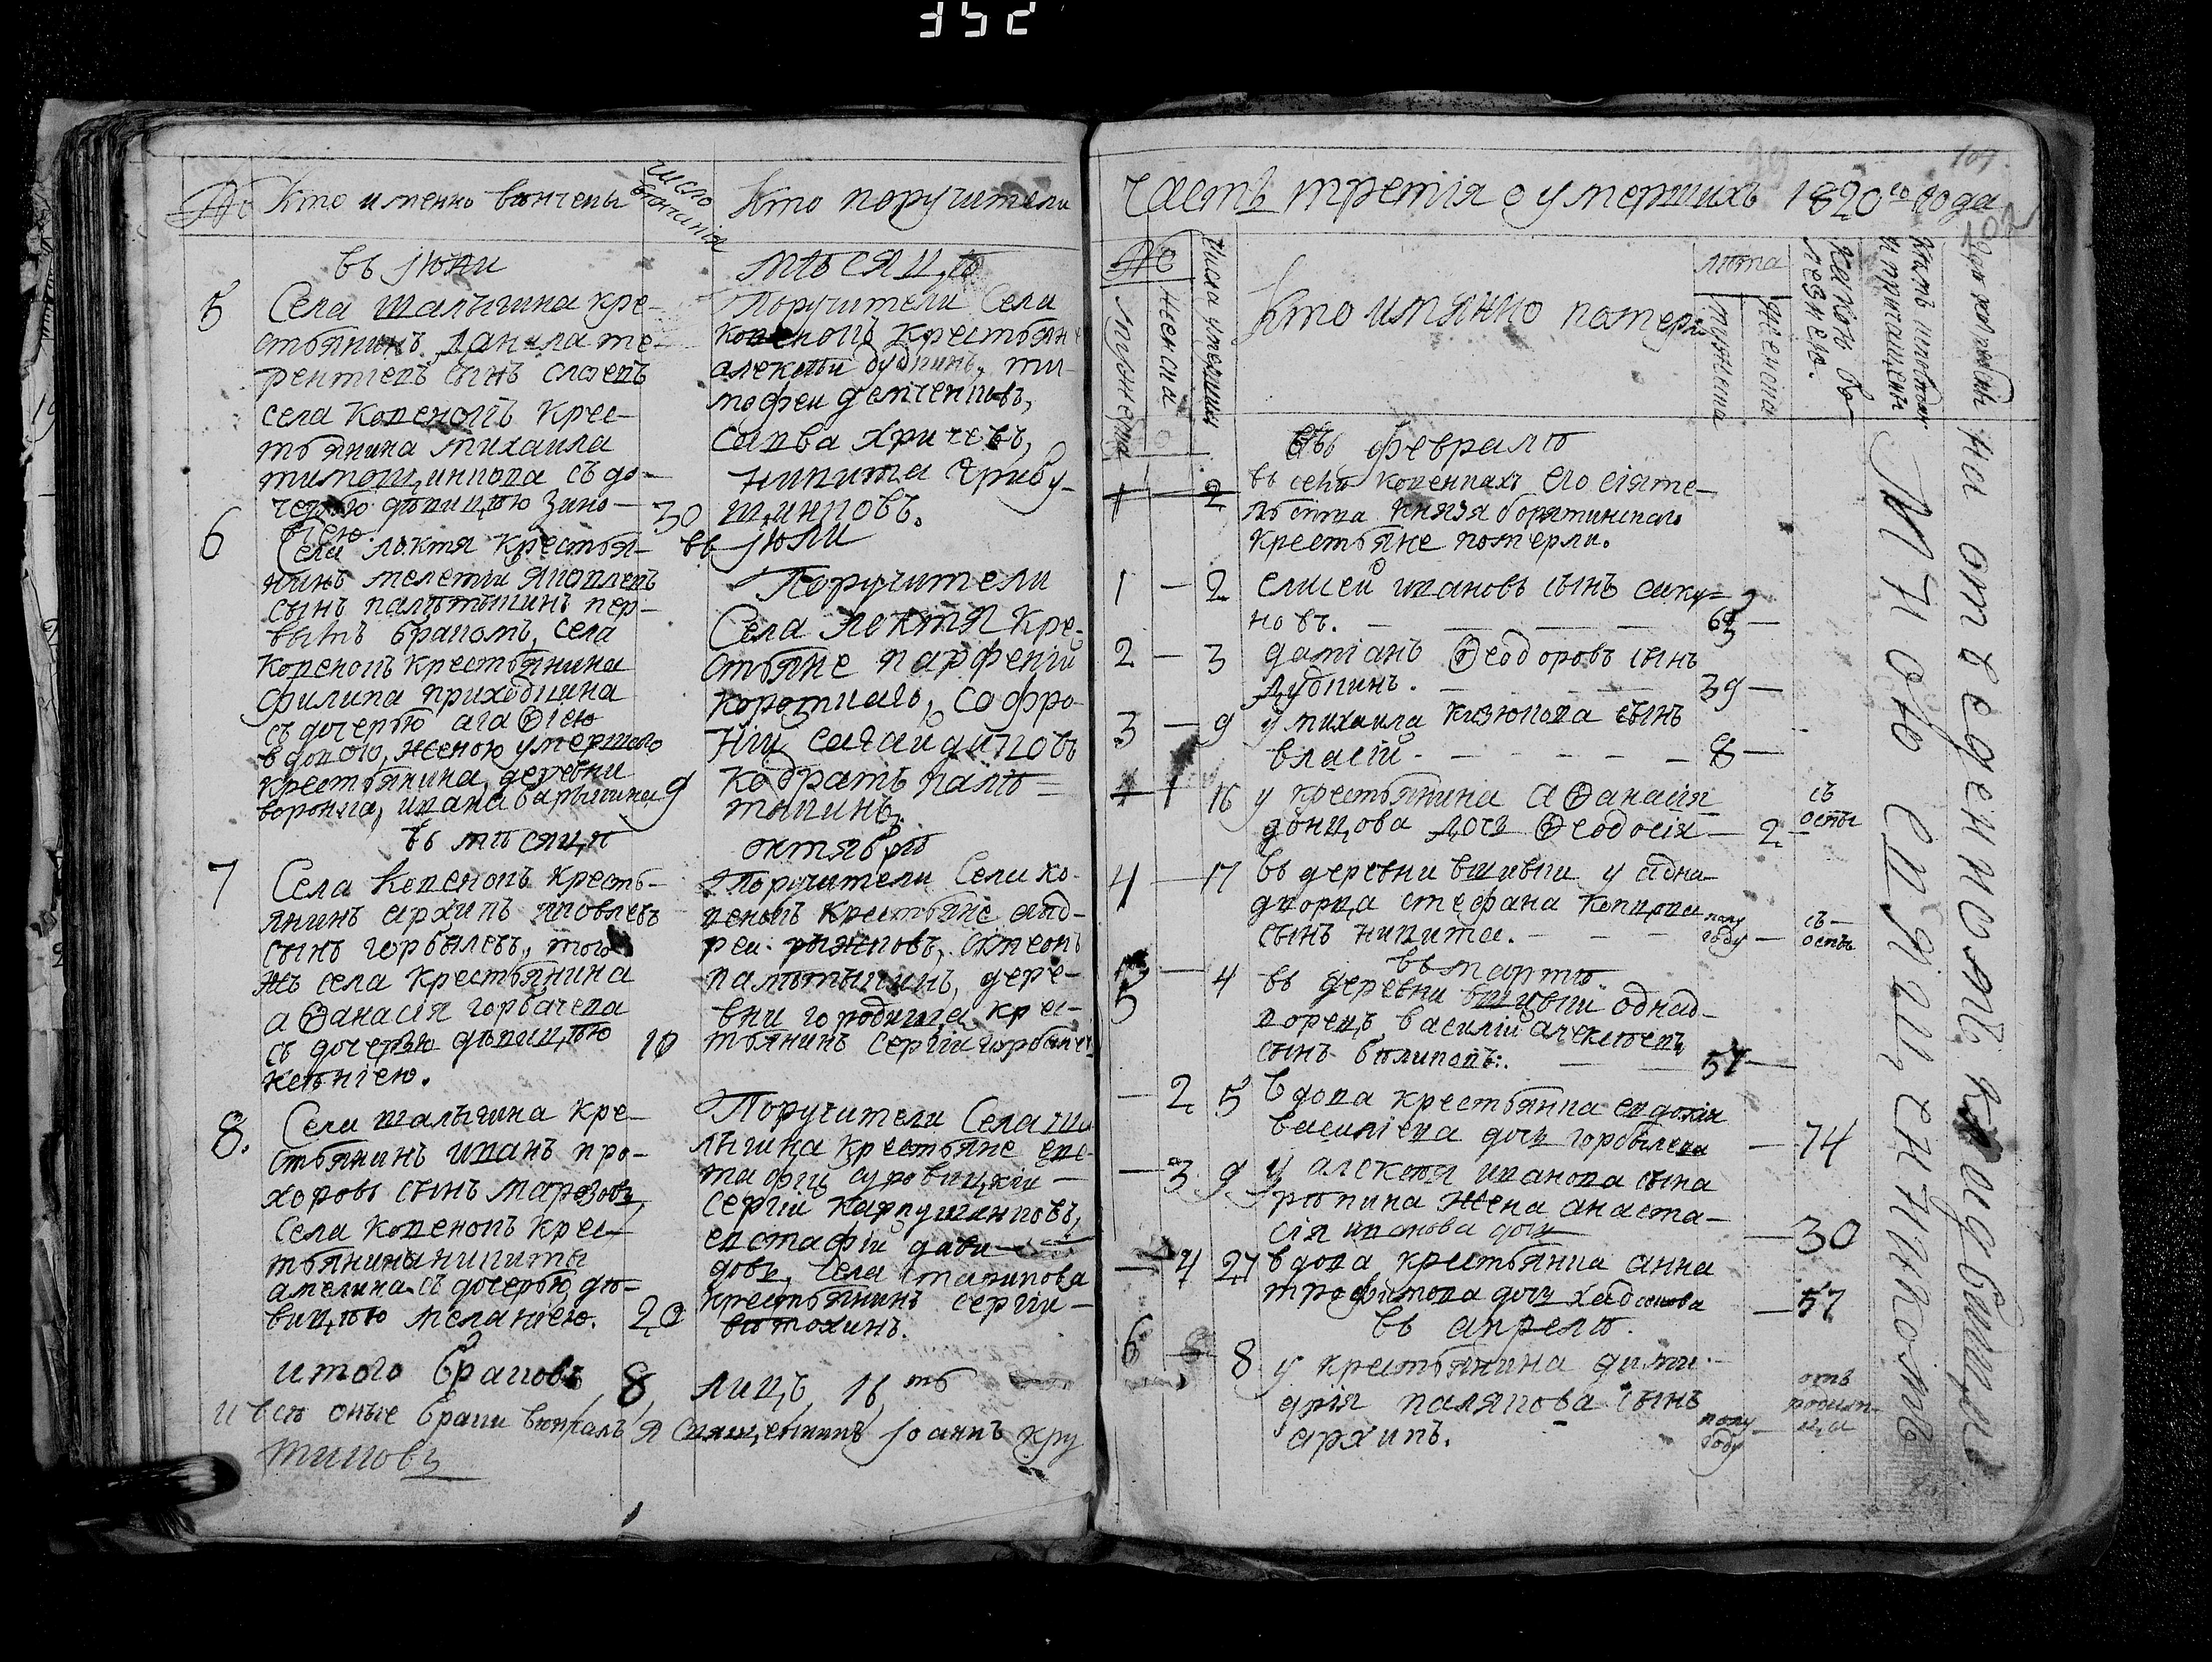 352
№
Кто именно венчены
число венчанія
Кто поручители
въ іюни
мѣсяцѣ
5
Села шалыгина кре-
стьянинъ данила те-
рентіевъ сынъ слаевъ
села Копенокъ крес-
тьянина михаила
тимощинкова съ до-
черью девицею Зино-
віею.
30
Поручители Села
копенокъ крестьяне
алексѣи дудкинъ, ти-
мофеи демченковъ,
савва хричевъ,
никита грибу-
щинковъ.
6
Села локтя крестья-
нинъ мелетіи яковлевъ
сынъ палѣтыкинъ пер-
вымъ бракомъ, села
копенокъ крестьянина
филипа приходкина
съ дочерью агаѳіею
вдовою, женою умершаго
крестьянина, деревни
воронка, ивана барыкина
9
въ іюли
Поручители
Села локтя кре-
стьяне парфеніи
короткаго, софро-
ніи сагаидаковъ
кодратъ палѣ-
тыкинъ.
въ мѣсяцѣ
октябрѣ
7
Села Копенокъ кресть-
янинъ архипъ яковлевъ
сынъ горбылевъ, того
жъ села крестьянина
аѳанасія горбачева
съ дочерью дѣвицею
ксѣніею.
10
Поручители Села ко-
пенокъ крестьяне анд-
реи рыжковъ,
палѣтыкинъ, дере-
вни городища крес-
тьянинъ сергіи горбачев
8.
Села шалыгина кре-
стьянинъ иванъ про-
хоровъ сынъ марозовъ,
села копенокъ крес-
тьянина никиты
амелина съ дочерью дѣ-
вицею меланіею.
20
Поручители Села ша
лыгина крестьяне евс-
тафіи суровицкіи
сергіи карпушенковъ,
евстафіи дави-
довъ, села статикова
крестьянинъ сергіи
ветохинъ.
итого браковъ 8, лицъ 16 ть
и всѣ оные браки венчалъ я священникъ Іоаннъ кру
тиковъ
Часть третія о умершихъ 1820го года
101.
102
№
мужеска
женска
Числа умершія
Кто имянно померъ
лѣта
мужеска
женска
Какою бо-
лезнею.
Кѣмъ исповѣдан
и пріищены
Гдѣ погребены
въ февралѣ
1 2 въ селѣ копенкахъ его сіяте-
льства князя борятинскаго
крестьяне померли.
1 — 2 елисеи ивановъ сынъ саку-
новъ. — 63 —
2 — 3 даміанъ Ѳеодоровъ сынъ
дудкинъ. — 39 —
3 — 9 у михаила кизюкова сынъ
власіи — 8 —
1 16 у крестьянина аѳанасія
донцова дочь Ѳеодосія — 2
съ
оспы
4 — 17 въ деревни вшивки у одна-
дворца стефана копцова
сынъ никита. — полу
году —
съ
оспы
въ мартѣ.
5 — 4 въ деревни вшивки однад-
ворецъ василіи алексѣевъ
сынъ беликовъ. — 57 —
— 2 5 вдова крестьянка евдокія
василіева дочь горбылева — 74
— 3 9 у алексѣя иванова сына
рѣпина жена анаста-
сія иванова дочь — 30
— 4 27 вдова крестьянка анна
трофимова дочь — 57
въ апрелѣ.
6 — 8 у крестьянина дими-
трія полякова сынъ
архипъ. — полу
году —
отъ
родим-
ца
Мною священникомъ
на отведенномъ кладбищѣ